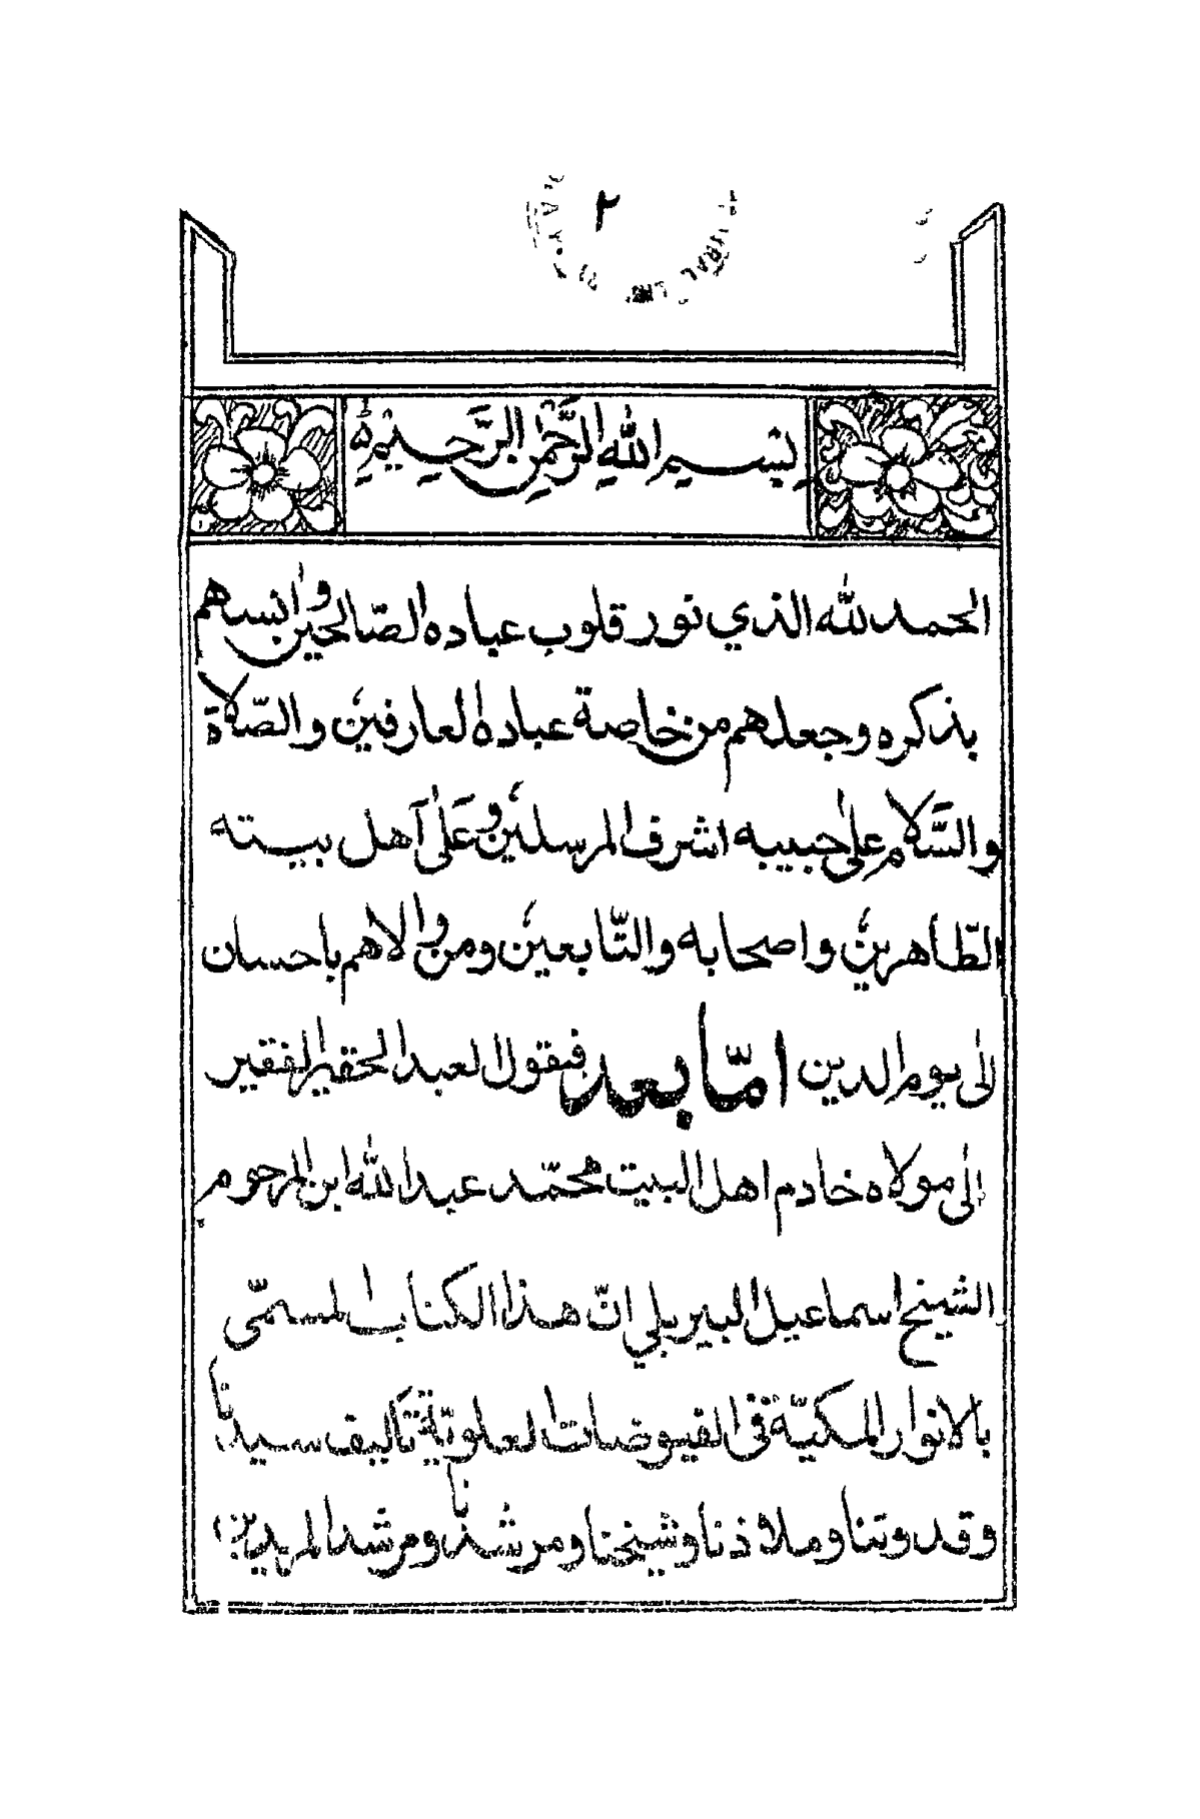 ٢
بِسْمِ اللهِ الرَّحْمٰنِ الرَّحِيْمِ
الحمد لله الذي نور قلوب عباده الصّالحين وانسهم
بذكره وجعلهم من خاصة عباده العارفين والصّلاة
والسَّلام على حبيبه اشرف المرسلين وَعَلى آهل بيته
الطّاهرين واصحابه والتّابعين ومن والاهم باحسان
الى يوم الدين امّا بعد فيقول العبد الحقير الفقير
الى مولاه خادم اهل البيت محمّد عبد الله ابن المرحوم
الشيخ اسماعيل البيربلي انّ هذا الكتاب المسمّى
بالانوار المكيّة فى الفيوضات العلويّة تأليف سيدنا
وقدوتنا وملاذنا وشيخنا ومرشدنا ومرشد المهدين